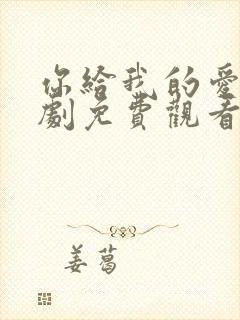 你給我的愛
劇免費觀看
姜葛